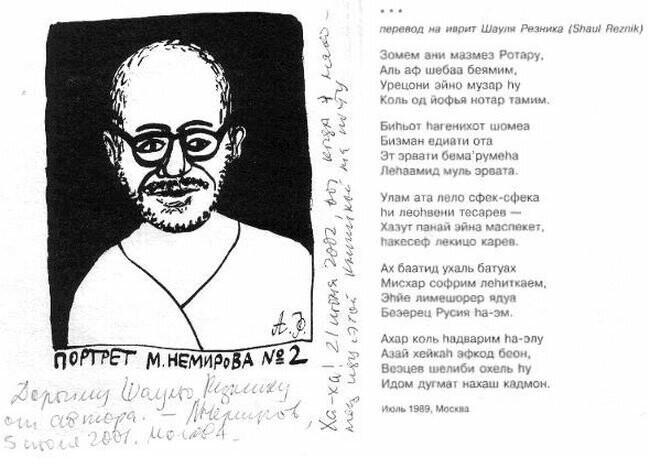 А.Ф.
ПОРТРЕТ М. НЕМИРОВА №2
Дорогому Шаулю Резнику
от автора. – Немиров,
5 июля 2001. Москва.
Ха-ха! 21 июня 2002, вот когда я нако-
нец иду с этой книжкой на почту
* * *
перевод на иврит Шауля Резника (Shaul Reznik)
Зомем ани мазмез Ротару,
Аль аф шебаа беямим,
Урецони эйно музар hу
Коль од йофья нотар тамим.
Биhьот hагенихот шомеа
Бизман едиати ота
Эт эрвати бема'румеhа
Леhаамид муль эрвата.
Улам ата лело сфек-сфека
hи леоhвени тесарев —
Хазут панай эйна маспекет,
hакесеф лекицо карев.
Ах баатид ухаль батуах
Мисхар софрим леhиткаем,
Эhйе лимешорер ядуа
Беэрец Русия hа-эм.
Ахар коль hадварим hа-элу
Азай хейкаh эфкод беон,
Веэцев шелиби охель hу
Идом дугмат нахаш кадмон.
Июль 1989, Москва